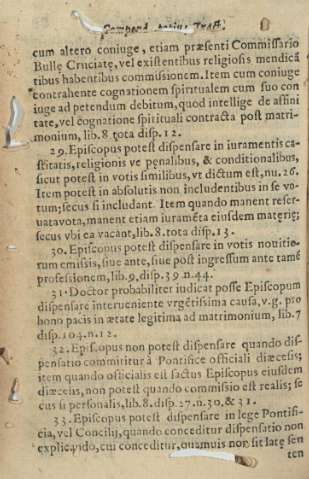 Compend. totius Tract.
cum altero coniuge, etiam præsenti Commissario
Bullę Cruciatę, vel existentibus religiosis mendicã
tibus habentibus commissionem. Item cum coniuge
contrahente cognationem spiritualem cum suo con
iuge ad petendum debitum, quod intellige de affini
tate, vel cognatione spirituali contracta post matri-
monium, lib. 8. tota disp. 12.
29. Episcopus potest dispensare in iuramentis ca-
stitatis, religionis ve pęnalibus, & conditionalibus,
sicut potest in votis similibus, vt dictum est, nu. 26.
Item potest in absolutis non includentibus in se vo-
tum; secus si includant. Item quando manent reser-
uata vota, manent etiam iuramẽta eiusdem materię;
secus vbi ea vacant, lib. 8. tota disp. 13.
30. Episcopus potest dispensare in votis nouitio-
rum emissis, siue ante, siue post ingressum ante tamẽ
professionem, lib. 9. disp. 39 n. 44.
31. Doctor probabiliter iudicat posse Episcopum
dispensare interueniente vrgẽtissima causa, v.g. pro
bono pacis in ætate legitima ad matrimonium, lib. 7
disp. 104. n. 12.
32. Episcopus non potest dispensare quando dis-
pensatio committitur à Pontifice officiali diœcesis;
item quando officialis est factus Episcopus eiusdem
diœcesis, non potest quando commissio est realis; se
cus si personalis, lib. 8. disp. 27. n. 30. & 31.
33. Episcopus potest dispensare in lege Pontifi-
cia, vel Concilij, quando conceditur dispensatio non
explicando, cui conceditur, quamuis non sit latę sen
ten